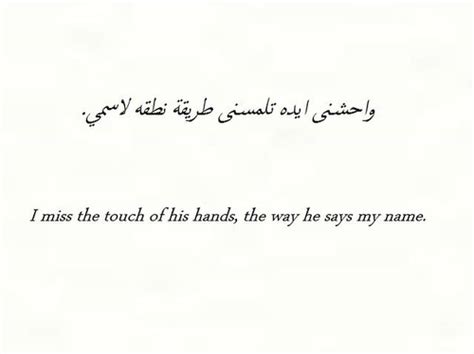 واحشنى ايده تلمسنى طريقة نطقه لاسمي.
I miss the touch of his hands, the way he says my name.